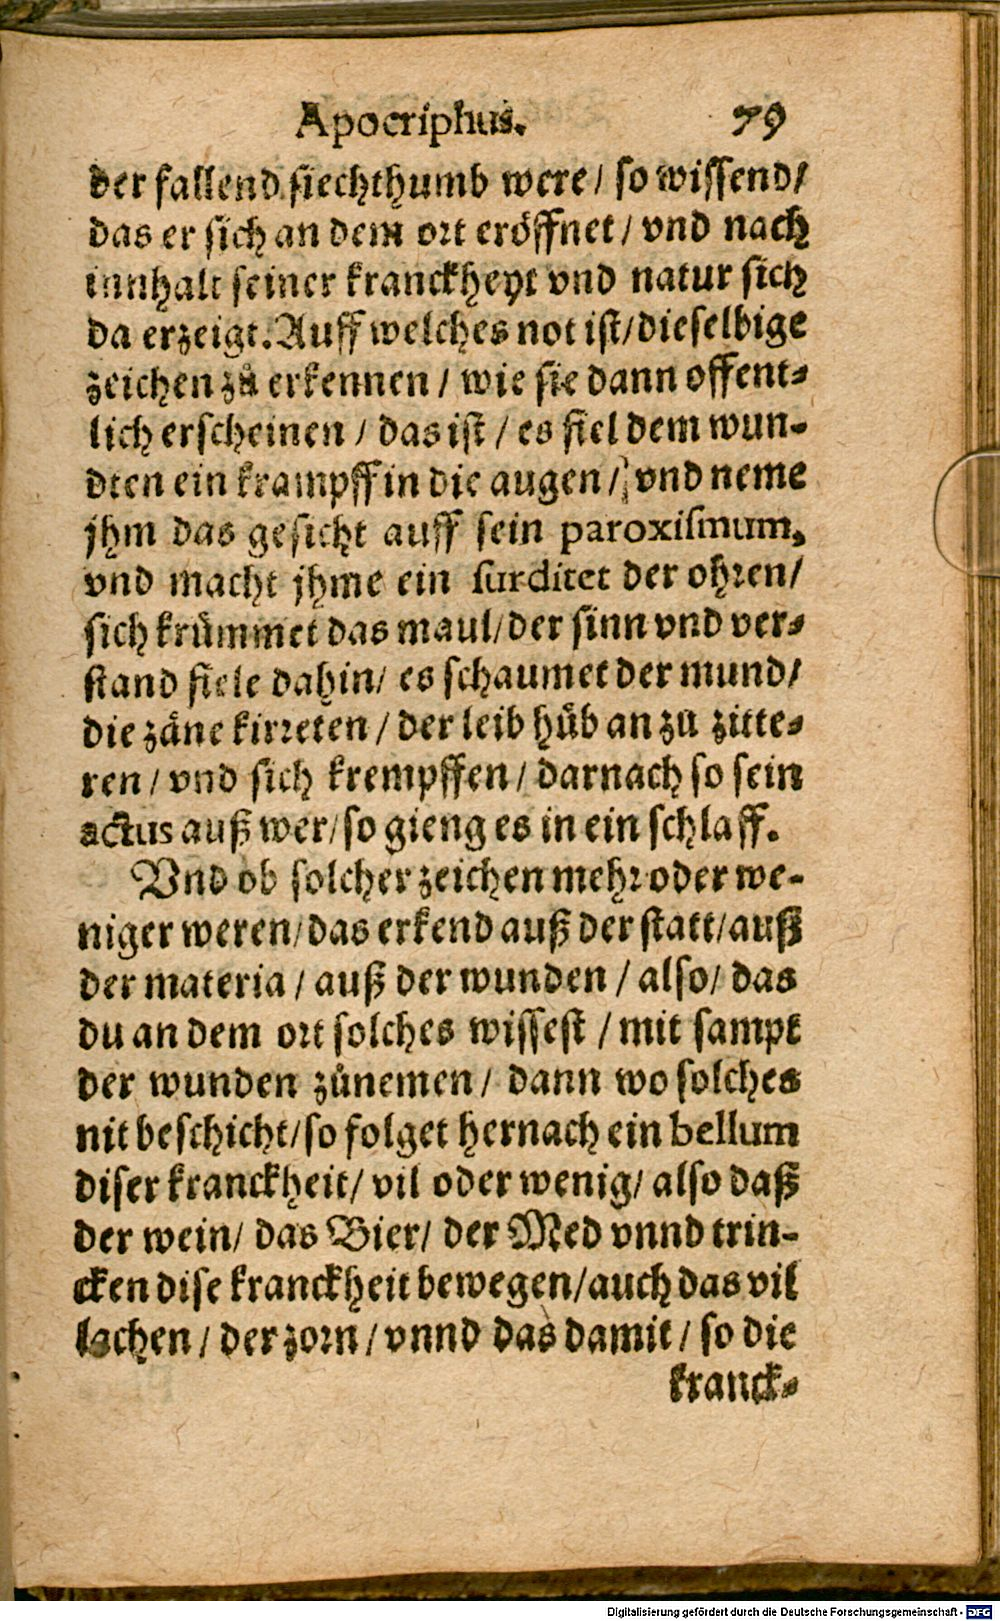 Apocriphus. 79
der fallend siechthumb were / so wissend /
das er sich an dem ort eröffnet / vnd nach
innhalt seiner kranckheyt vnd natur sich
da erzeigt. Auff welches not ist / dieselbige
zeichen zů erkennen / wie sie dann offent⸗
lich erscheinen / das ist / es fiel dem wun⸗
dten ein krampff in die augen / vnd neme
jhm das gesicht auff sein paroxiſmum,
vnd macht jhme ein ſurditet der ohren /
sich krümmet das maul / der sinn vnd ver⸗
stand fiele dahin / es schaumet der mund /
die zäne kirreten / der leib hůb an zu zitte⸗
ren / vnd sich krempffen / darnach so sein
actus auß wer / so gieng es in ein schlaff.
Vnd ob solcher zeichen mehr oder we⸗
niger weren / das erkend auß der statt / auß
der materia / auß der wunden / also / das
du an dem ort solches wissest / mit sampt
der wunden zůnemen / dann wo solches
nit beschicht / so folget hernach ein bellum
diser kranckheit / vil oder wenig / also daß
der wein / das Bier / der Med vnnd trin⸗
cken dise kranckheit bewegen / auch das vil
lachen / der zorn / vnnd das damit / so die
kranck⸗
Digitalisierung gefördert durch die Deutsche Forschungsgemeinschaft - DFG